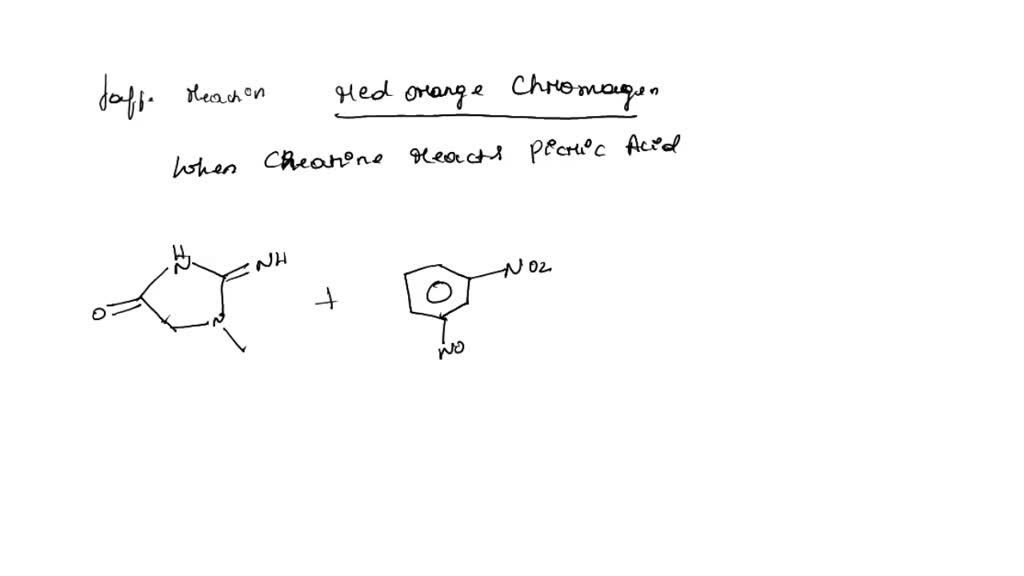 Jaff. Reaction Red orange Chromogen
When Creatine Reacts Picric Acid
H
N
NH
O
N
+
NO2
NO